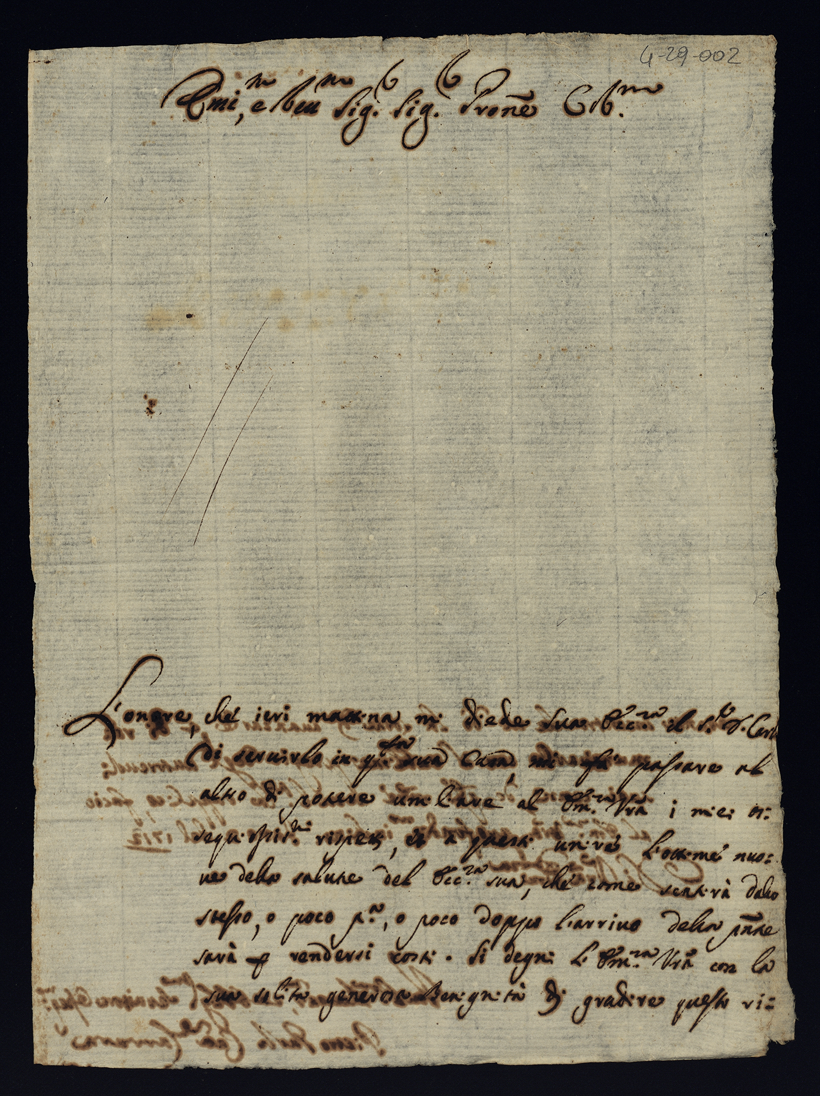 4-29-002
Emi.mo, e Reu.mo Sig.r Sig.r Pron̄e Col.mo
L'onore, che ieri mattina mi diede Sua Ecc.za il S.r D. Carl
di seruirlo in q.sta sua Casa, mi fa passare al
altro di potere umiliare al Em.za Vr̄a i miei os:
sequiosiss.mi rispetti, et a questi unire l'ottime nuo:
ue della salute del Ecc.za sua, che come sentirà dallo
stesso, o poco p.a, o poco doppo l'arriuo della pn̄te
sarà p rendersi costì. Si degni l'Em.za Vr̄a con la
sua solita generosa Benignità di gradire questo ri: